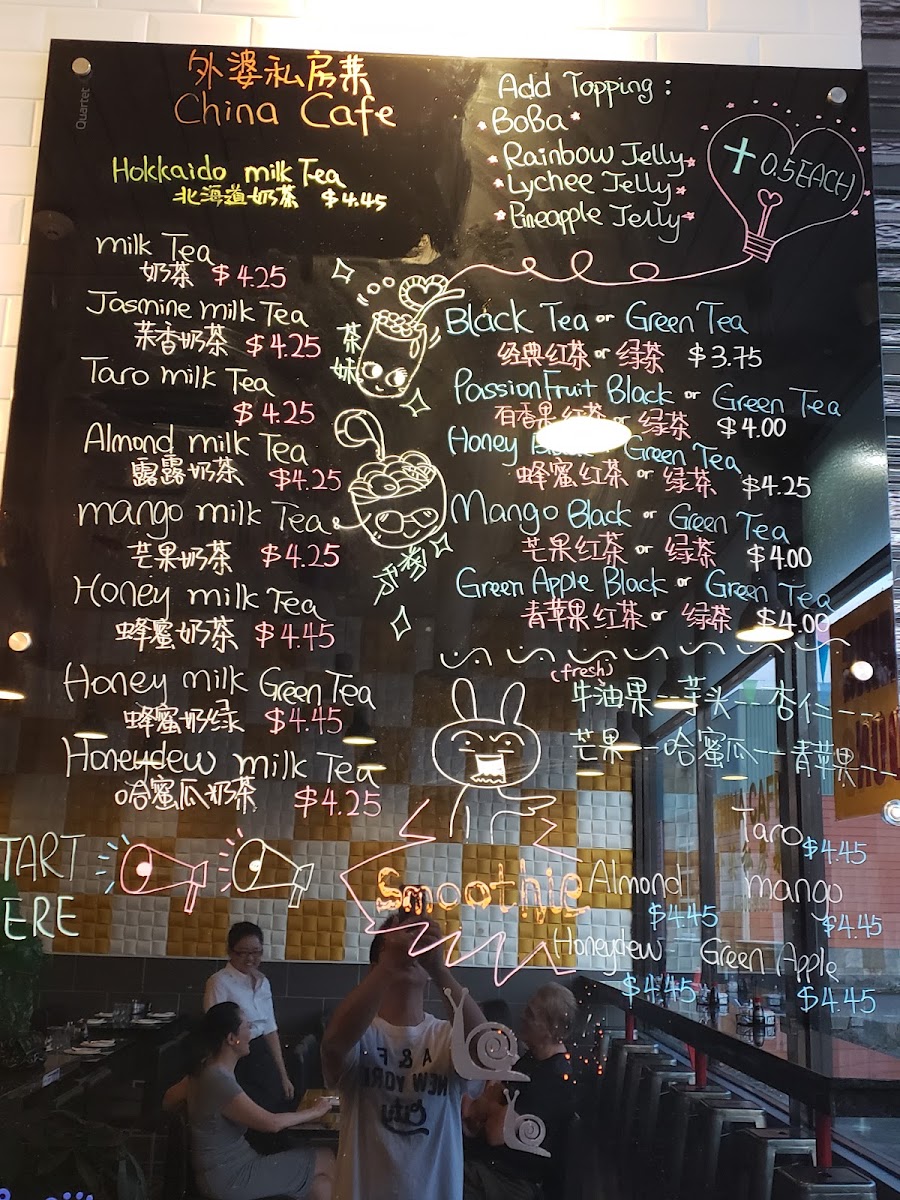 Quartet
外婆私房菜
China Cafe
Hokkaido milk Tea
北海道奶茶 $4.45
milk Tea
奶茶 $4.25
Jasmine milk Tea
茉香奶茶 $4.25
Taro milk Tea
$4.25
Almond milk Tea
露露奶茶 $4.25
mango milk Tea
芒果奶茶 $4.25
Honey milk Tea
蜂蜜奶茶 $4.45
Honey milk Green Tea
蜂蜜奶绿 $4.45
Honeydew milk Tea
哈蜜瓜奶茶 $4.25
TART
ERE
茶
妹
Add Topping:
BoBa
Rainbow Jelly
Lychee Jelly
Pineapple Jelly
+0.5 EACH
Black Tea or Green Tea
经典红茶 or 绿茶 $3.75
PassionFruit Black or Green Tea
百香果红茶 or 绿茶 $4.00
Honey Black or Green Tea
蜂蜜红茶 or 绿茶 $4.25
Mango Black or Green Tea
芒果红茶 or 绿茶 $4.00
Green Apple Black or Green Tea
青苹果红茶 or 绿茶 $4.00
(fresh)
牛油果--芋头--杏仁--
芒果--哈蜜瓜--青苹果--
Smoothie
Taro $4.45
Almond mango
$4.45 $4.45
Honeydew Green Apple
$4.45 $4.45
A & F
NEW YORK
City